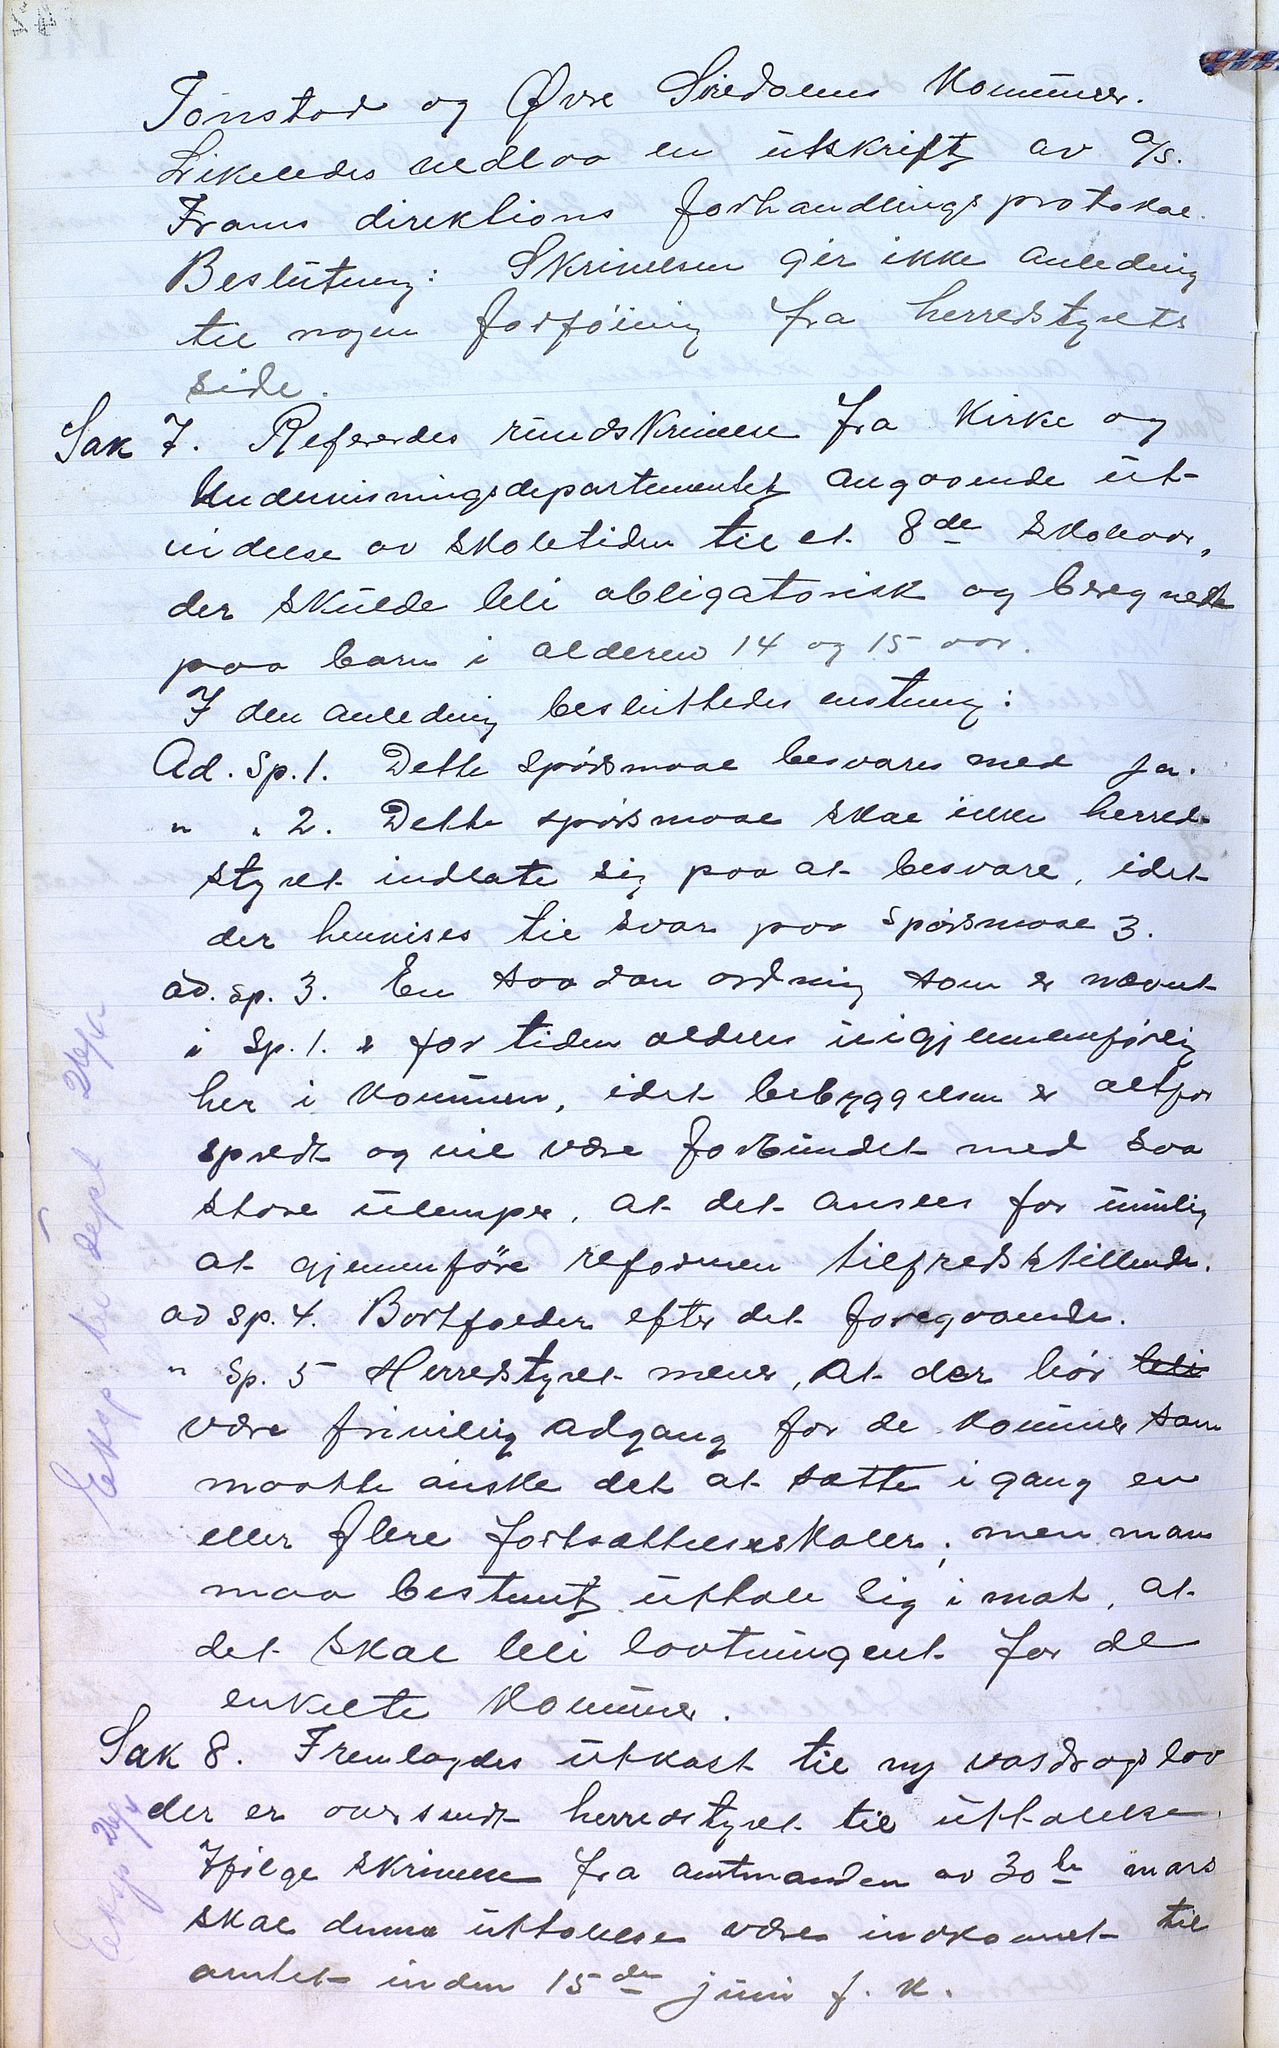 Tonstad og Øvre Siredalens Kommuner.
Likeledes vedlaa en utskrift av A/S.
Frams direktions forhandlingsprotokol.
Beslutning: Skrivelsen gir ikke anledning
til nogen forføining fra herredstyrets
side.
Sak 7. Refererdes rundskrivelse fra Kirke og
Undervisningsdepartementet angaaende ut-
videlse av skoletiden til et 8de skoleaar,
der skulde bli obligatorisk og beregnet
paa barn i alderen 14 og 15 aar.
I den anledning besluttedes enstemig:
Ad. Sp. 1. Dette spørsmaal besvares med ja.
" " 2. Dette spørsmaal skal ikke herred-
styret indlate sig paa at besvare, idet
der henvises til svar paa spørsmaal 3.
ad. Sp. 3. En saadan ordning som er nævnt
i Sp. 1. er for tiden aldeles uigjennemførlig
her i kommunen, idet bebyggelsen er altfor
spredt og vil være forbundet med saa
store ulemper, at det ansees for umulig
at gjennemføre reformen tilfredsstillende.
ad Sp. 4. Bortfalder efter det foregaaende.
" Sp. 5 Herredstyret mener, at der bør bli
være frivillig adgang for de kommuner som
maatte ønske det at sætte i gang en
eller flere fortsættelsesskoler; men man
maa bestemt uttale sig imot, at
det skal bli lovtvungent for de
enkelte kommuner.
Eksp. til dept 26/4
Sak 8. Fremlagdes utkast til ny vasdragslov
der er oversendt herredstyret til uttalelse.
Ifølge skrivelse fra amtmanden av 30te mars
skal denne uttalelse være indkommet til
amtet inden 15de juni f. k.
Eksp 26/4